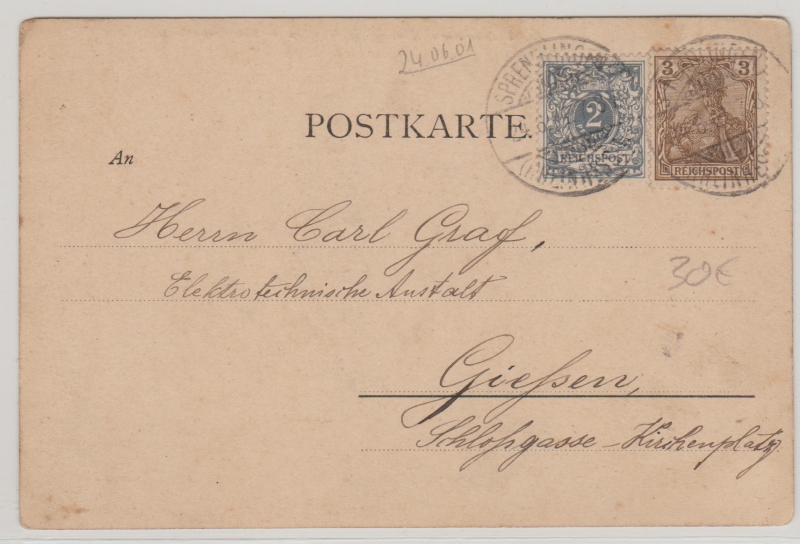 24.06.01
SPRENDLINGEN
2
REICHSPOST
3
REICHSPOST
POSTKARTE.
An
Herrn Carl Graf,
Elektrotechnische Anstalt
30€
Gießen,
Schloßgasse-Kirchenplatz